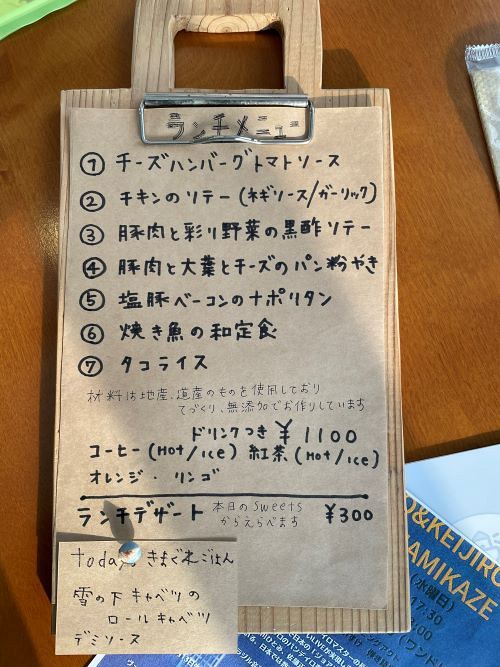 ランチメニュー
① チーズハンバーグトマトソース
② チキンのソテー (ネギソース/ガーリック)
③ 豚肉と彩り野菜の黒酢ソテー
④ 豚肉と大葉とチーズのパン粉やき
⑤ 塩豚ベーコンのナポリタン
⑥ 焼き魚の和定食
⑦ タコライス
材料は地産、道産のものを使用しており
てづくり、無添加でお作りしています
ドリンクつき ¥1100
コーヒー (Hot/ice) 紅茶 (Hot/ice)
オレンジ・リンゴ
ランチデザート 本日のSweets
からえらべます ¥300
today きまぐれごはん
雪の下キャベツの
ロールキャベツ
デミソース
O&KEIJIRO
AMIKAZE
(水曜日)
17:30